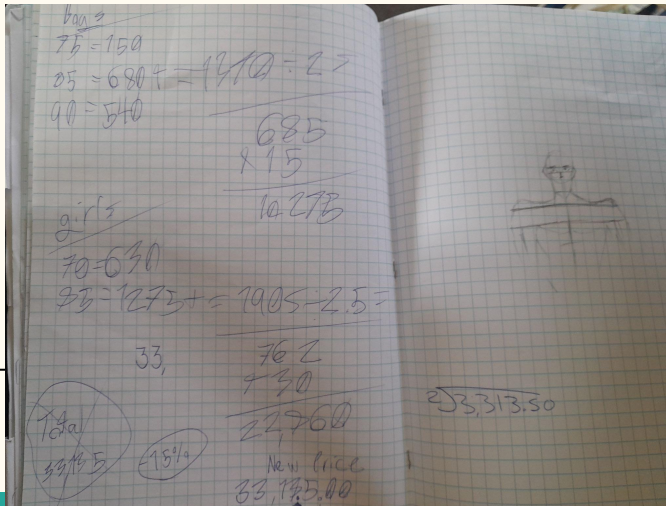 boy's
75 = 150
85 = 680 + = 1370 ÷ 2 =
90 = 540
685
x 15
10,275
girl's
70 = 630
85 = 1275 + = 1905 ÷ 2.5 =
33,
762
30
22,860
Total
33,135
-15%
New Price
33,135.00
2)3,313.50